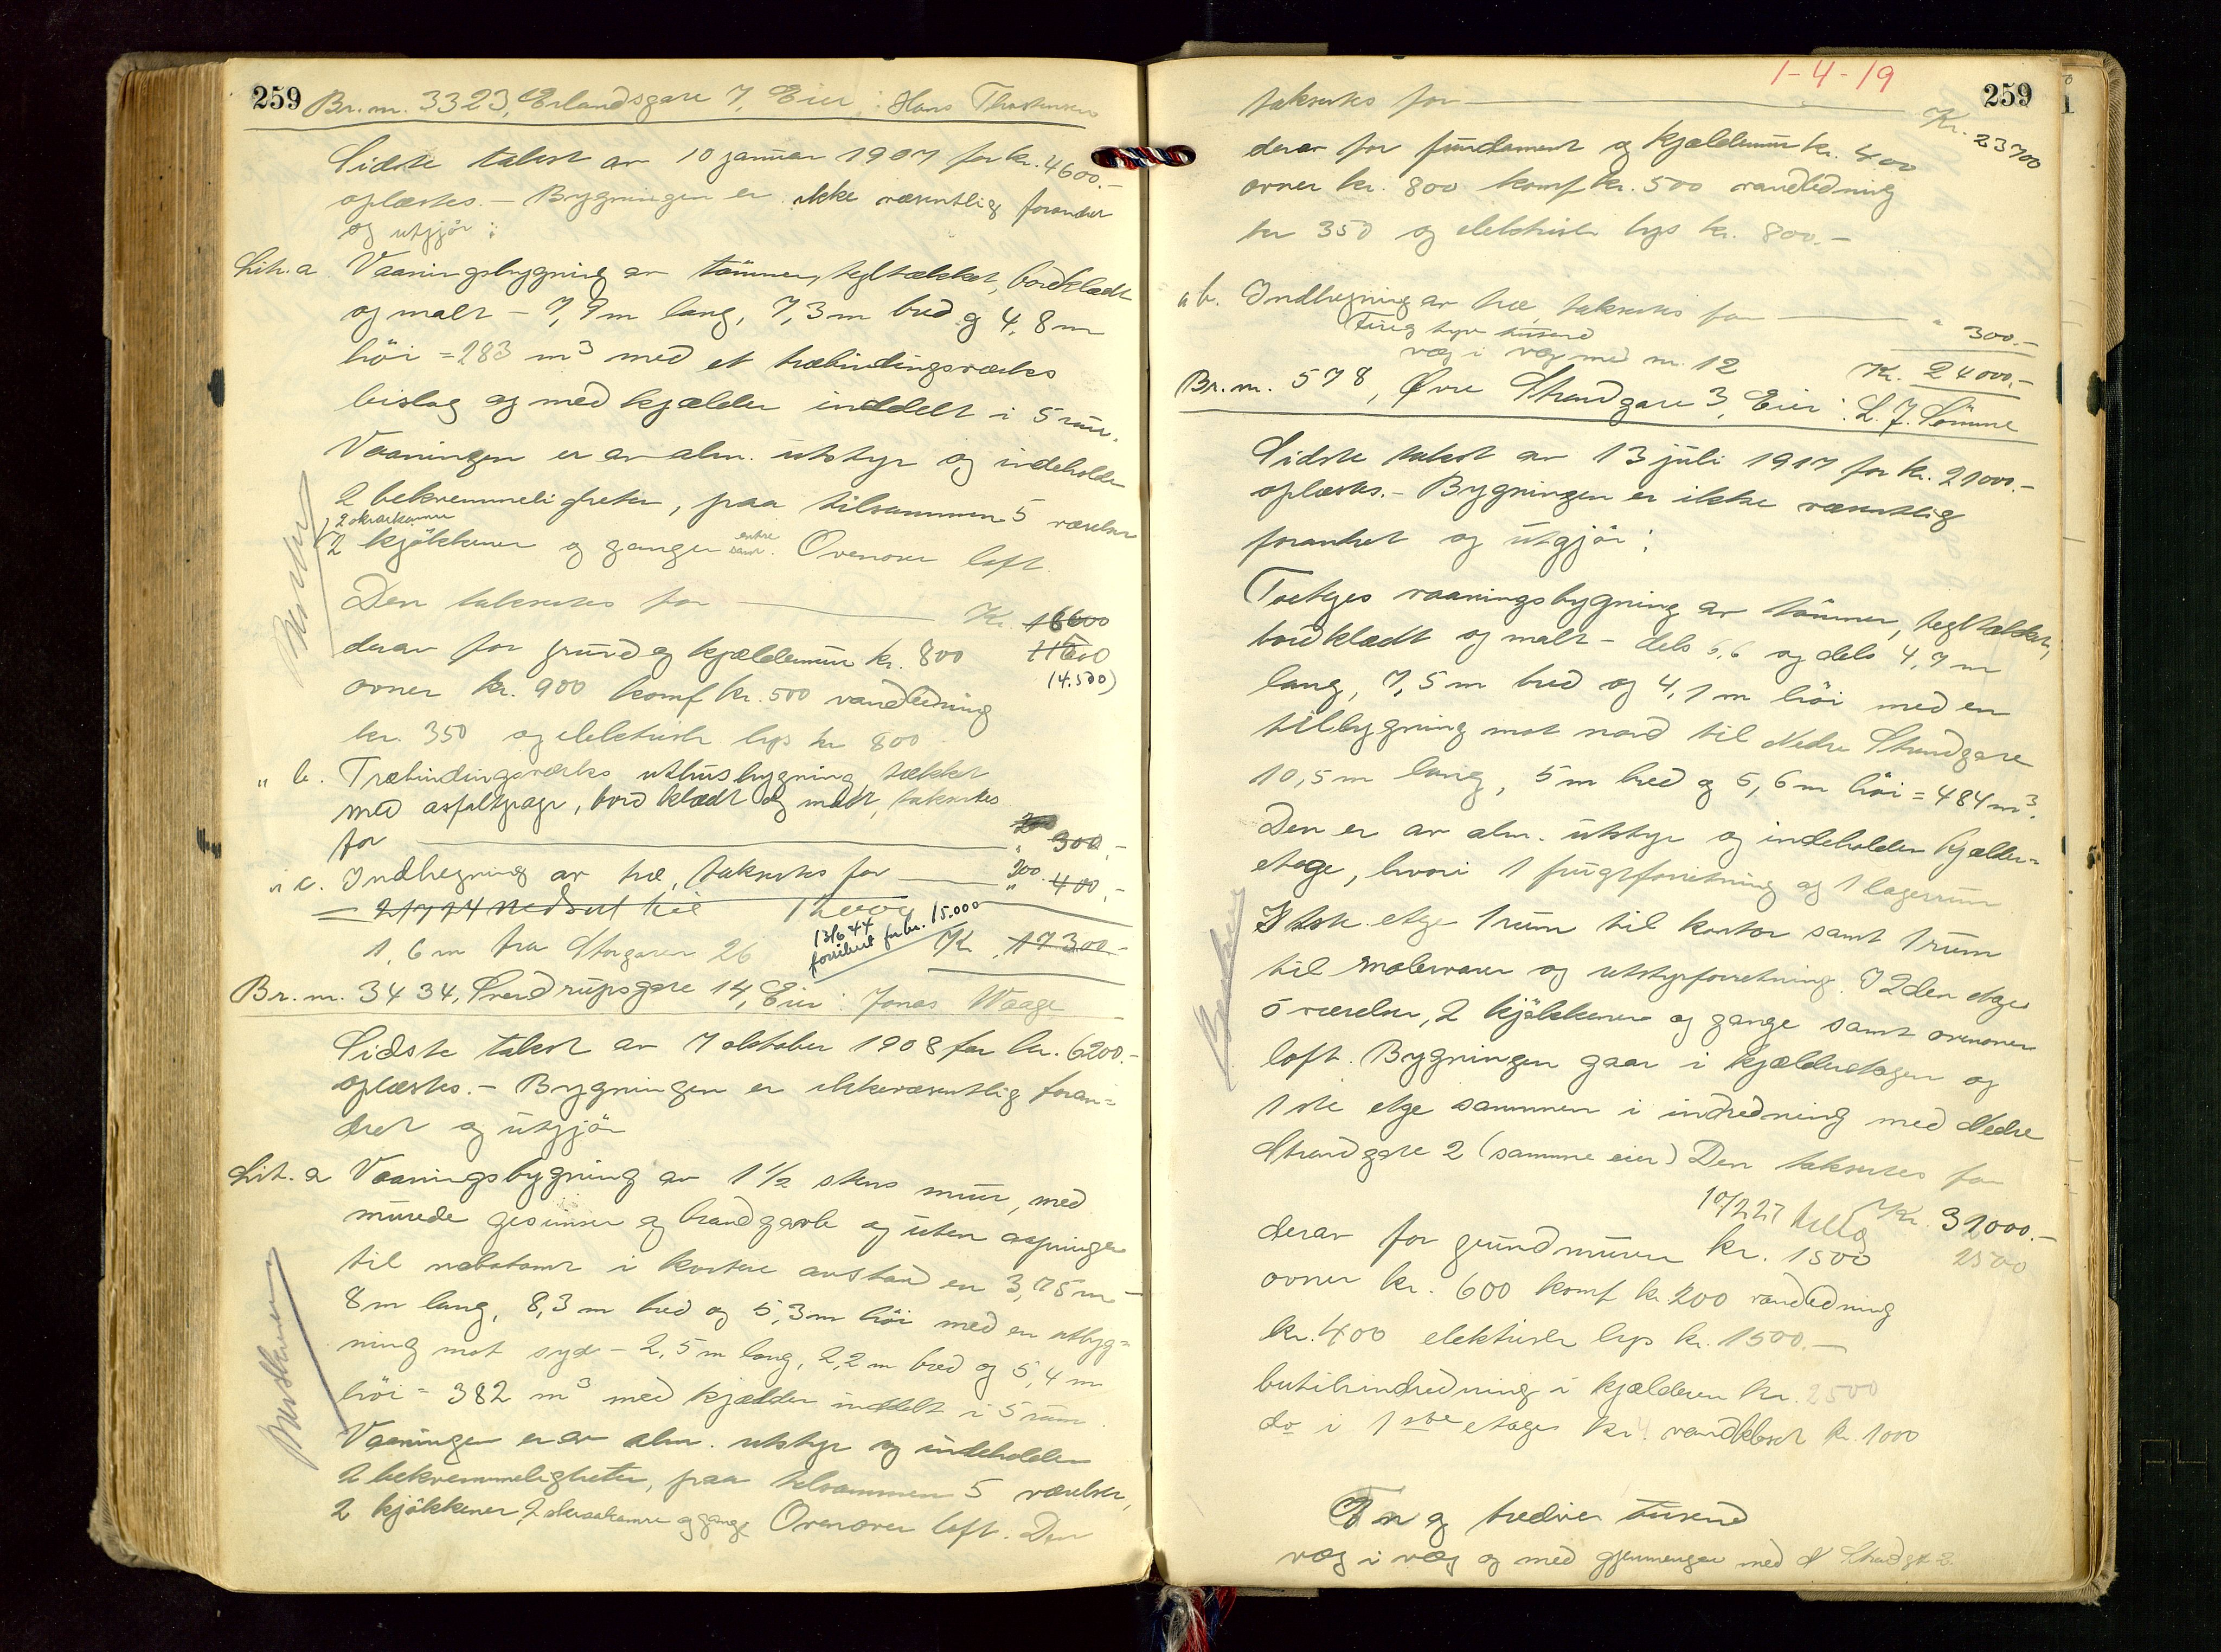 259 Br.nr. 3323, Erlandsgate 7, Eier: Hans
Sidste takst av 10 januar 1907 for kr. 4600.-
oplæstes. - Bygningen er ikke væsentlig forandret
og utgjör:
Lit. a Vaaningsbygning av tömmer, tegltækket, bordklædt
og malt - 7,9 m lang, 7,3 m bred og 4,8 m
höi = 283 m³ med et træbindingsverks
bislag og med kjælder inddelt i 5 rum.
Vaaningen er av alm. utstyr og indeholder
2 bekvemmeligheter, paa tilsammen 5 værelser
, 2 skraakamre
2 kjökkener og ganger samt entre. Ovenover loft.
Den takseres for Kr. 16600
derav for grund og kjældermur kr. 800 11600
ovner kr. 900 komf kr. 500 vandledning (4.500)
kr. 350 og elektrisk lys kr 800
" b. Træbindingsverks uthusbygning, tækket
med asfaltpap, bordklædt og malt, takseres
for 200 " 300.-
" c. Indhegning av træ, takseres for 200. " 400.-
= 21/7 24 nedsat til 12000
1,6 m fra Storgaten 26 13/6 44 forsikret for kr. 15.000 Kr. 17300.-
Br.nr. 3434, Sverdrupsgate 14, Eier: Jonas Waage
Sidste takst av 7 oktober 1908 for kr. 6200.-
oplæstes. - Bygningen er ikke væsentlig foran-
dret og utgjör
Lit. a Vaaningsbygning av 1 1/2 stens mur, med
murede gesimser og brandgavle og uten aapninger
til nabotomt i kortere avstand en 3,75 m -
8 m lang, 8,3 m bred og 5,3 m höi med en utbyg=
ning mot syd - 2,5 m lang, 2,2 m bred og 5,4 m
höi = 382 m³ med kjælder inddelt i 5 rum.
Vaaningen er av alm. utstyr og indeholder
2 bekvemmeligheter, paa tilsammen 5 værelser,
2 kjökkener, 2 skraakamre og gange Ovenover loft. Den
1-4-19 259
takseres for Kr. 23700
derav for fundament og kjældermur kr. 400
ovner kr. 800 komf kr. 500 vandledning
kr 350 og elektrisk lys kr. 800.-
" b. Indhegning av træ, takseres for " 300.-
Fireogtyve tusend
væg i væg med nr. 12 Kr. 24000.-
Br.nr. 578, Øvre Strandgate 3, Eier: L. J. Sömme
Sidste takst av 13 juli 1917 for kr. 21000.-
oplæstes. - Bygningen er ikke væsentlig
forandret og utgjör:
Toetages vaaningsbygning av tömmer, tegltækket,
bordklædt og malt - dels 6,6 og dels 4,7 m
lang, 7,5 m bred og 4,1 m höi med en
tilbygning mot nord til Nedre Strandgate
10,5 m lang, 5 m bred og 5,6 m höi = 484 m³.
Den er av alm. utstyr og indeholder kjælder=
etage, hvori 1 forretning og 1 lagerrum
I 1ste etage 1 rum til kontor samt 1 rum
til malervarer og utstyrforretning. I 2den etage
5 værelser, 2 kjökkener og gange samt ovenover
loft. Bygningen gaar i kjælderetagen og
1ste etage sammen i indredning med Nedre
Strandgate 2 (samme eier) Den takseres for
10/2 27 Kr. 31000.-
derav for grundmuren kr. 1500 2500
ovner kr. 600 komf kr. 200 vandledning
kr. 400 elektrisk lys kr. 1500.-
butikindredning i kjælderen kr. 2500
do i 1ste etage kr. vandklosett kr. 1000
En og tredive tusend
væg i væg og med gjennemgang med N Strandgt 2.